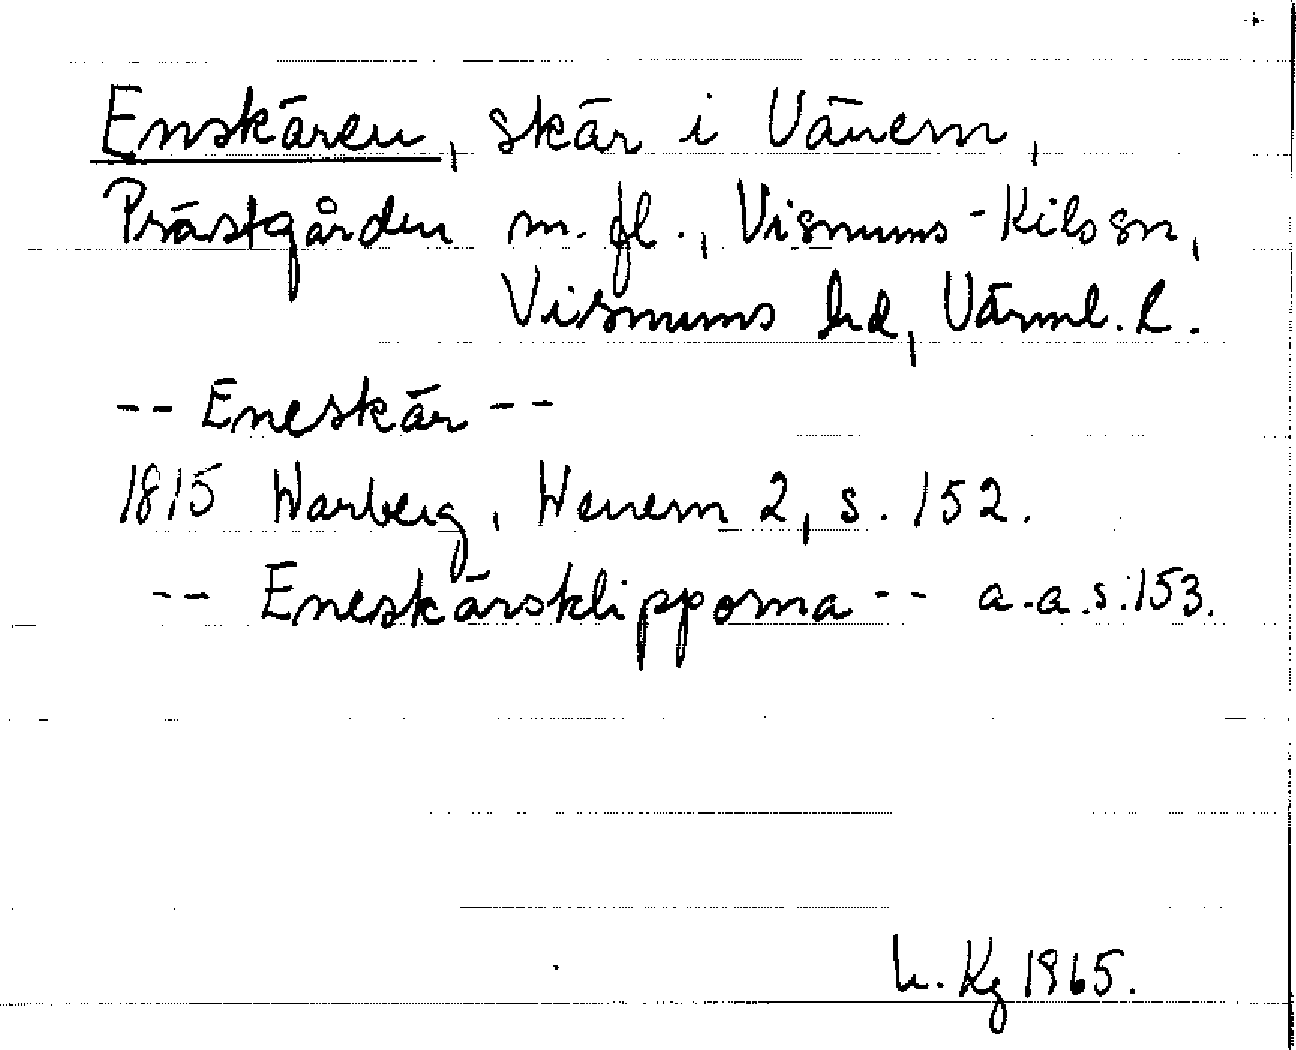 Enskären, skär i Vänern,
Prästgården m. fl., Visnums-Kils sn,
Visnums hd, Värml. l.
-- Eneskär --
1815 Warberg, Wenern 2, s. 152.
-- Eneskärsklipporna -- a.a.s.153.
h. Kg 1965.